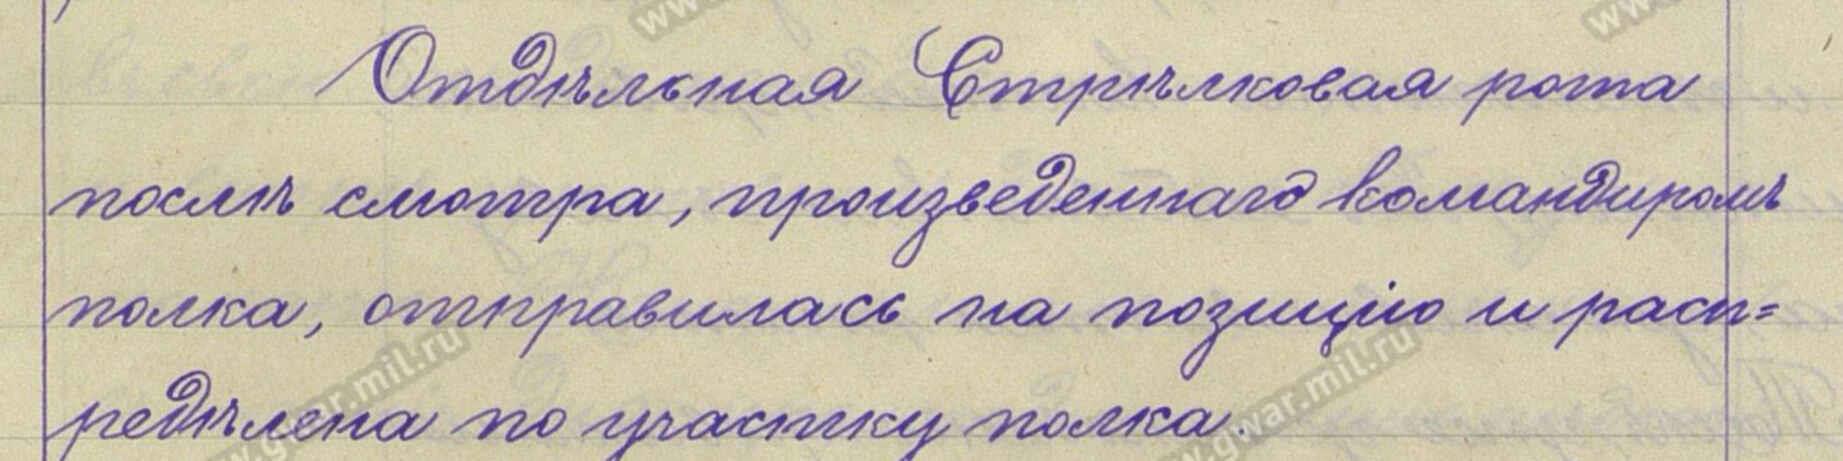 Отдѣльная Стрѣлковая рота
послѣ смотра, произведеннаго командиромъ
полка, отправилась на позицію и расп=
редѣлена по участку полка.